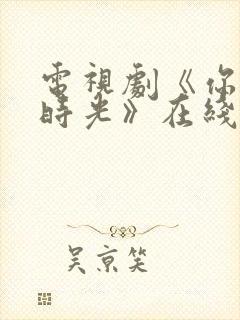 電視劇《你
時光》在綫
吳京笑